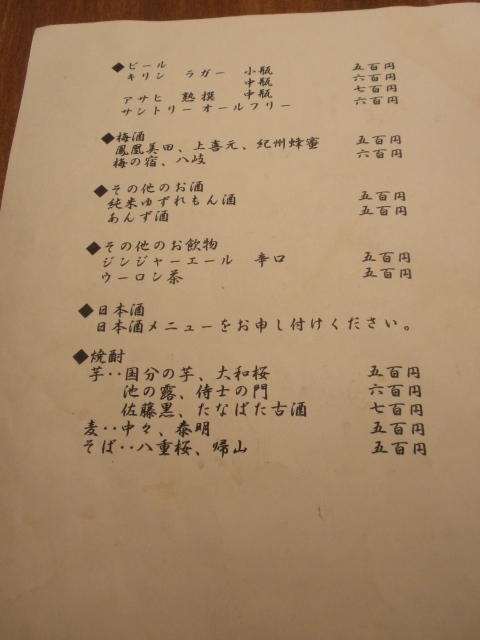 ◆ビール
キリン ラガー 小瓶 五百円
中瓶 六百円
アサヒ 熟撰 中瓶 七百円
サントリー オールフリー 六百円
◆梅酒
鳳凰美田、上喜元、紀州蜂蜜 五百円
梅の宿、八岐 六百円
◆その他のお酒
純米ゆずれもん酒 五百円
あんず酒 五百円
◆その他のお飲物
ジンジャーエール 辛口 五百円
ウーロン茶 五百円
◆日本酒
日本酒メニューをお申し付けください。
◆焼酎
芋‥国分の芋、大和桜 五百円
池の露、侍士の門 六百円
佐藤黒、たなばた古酒 七百円
麦‥中々、泰明 五百円
そば‥八重桜、帰山 五百円